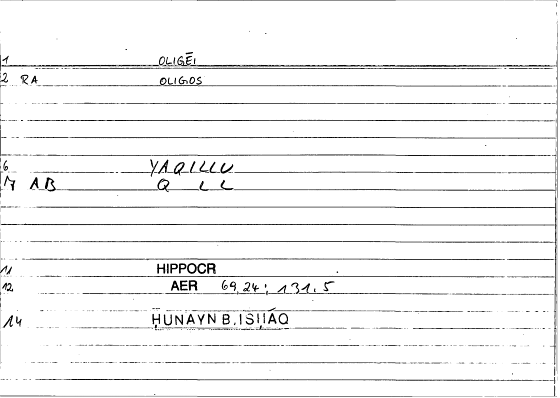 1 OLIGĒI
2 RA OLIGOS
6 YAQILLU
7 AB Q L L
11 HIPPOCR
12 AER 69,24; 131.5
14 ḤUNAYN B. ISḤĀQ